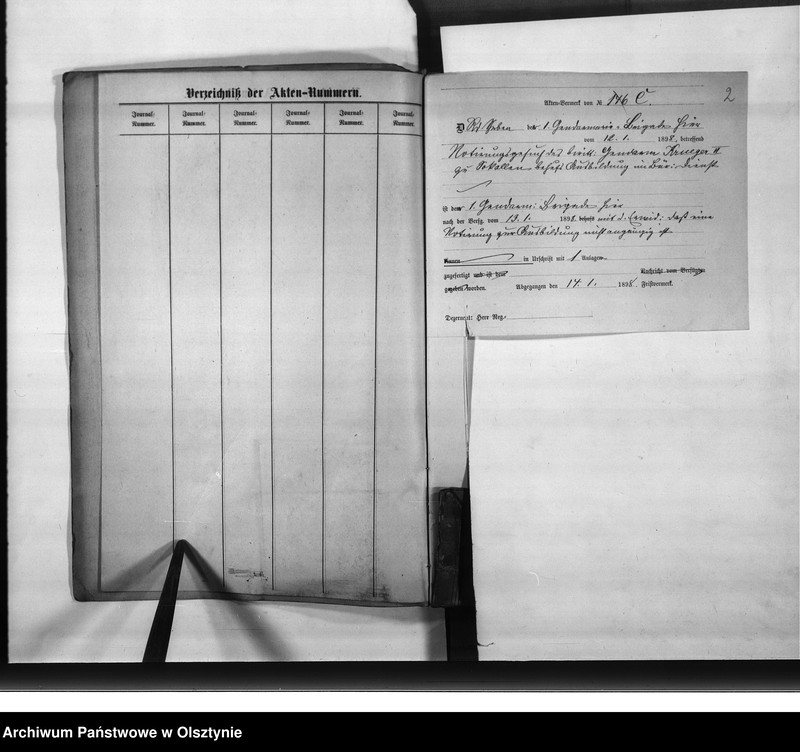 Verzeichniß der Akten-Nummern.
Journal-Nummer. Journal-Nummer. Journal-Nummer. Journal-Nummer. Journal-Nummer. Journal-Nummer.
2
Akten-Vermerk von № 146 C.
D Schreiben der 1. Gendarmerie-Brigade hier
vom 12. 1. 1898, betreffend
Notierungsgesuch des Gendarm Krueger II
zu behufs Ausbildung im Bür: dienst
ist der 1. Gendarm: Brigade hier
nach der Verfg. vom 13. 1. 1898 behufs mit d. Erwid: daß eine
Notierung zur Ausbildung nicht angängig ist
binnen in Urschrift mit 1 Anlage
zugefertigt und ist dem Nachricht vom Verfügten
gegeben worden. Abgegangen den 14. 1. 1898. Fristvermerk.
Dezernent: Herr Reg.-
Archiwum Państwowe w Olsztynie